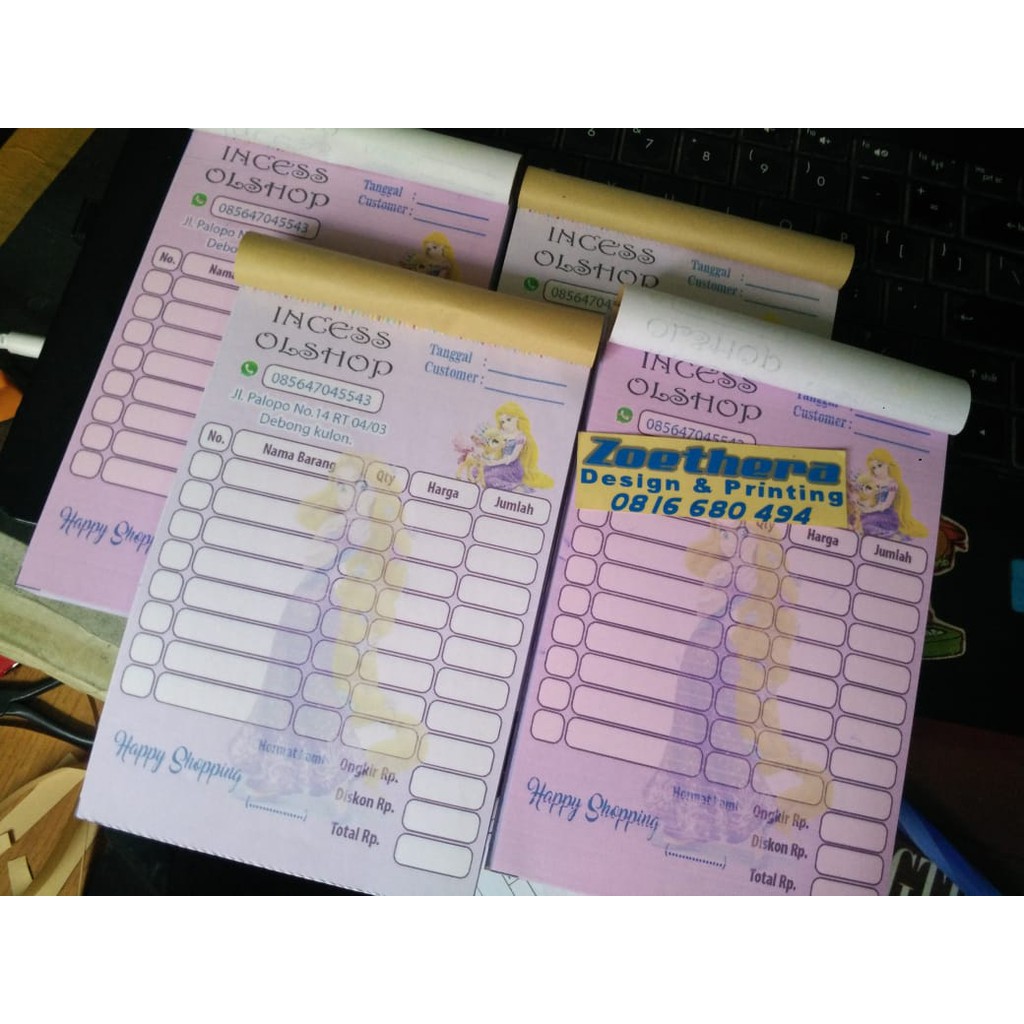 INCESS
OLSHOP
085647045543
Jl. Palopo
Tanggal :
Customer :
No.
Happy
INCESS
OLSHOP
Tanggal :
Customer :
INCESS
OLSHOP
085647045543
Jl. Palopo No.14 RT 04/03
Debong kulon.
Tanggal :
Customer :
No. Nama Barang Qty Harga Jumlah
Happy Shopping
Hormat kami
(................)
Ongkir Rp.
Diskon Rp.
Total Rp.
OLSHOP
INCESS
OLSHOP
085647045543
Tanggal :
Customer :
Zoethera
Design & Printing
0816 680 494
Qty Harga Jumlah
Happy Shopping
Hormat kami
(................)
Ongkir Rp.
Diskon Rp.
Total Rp.